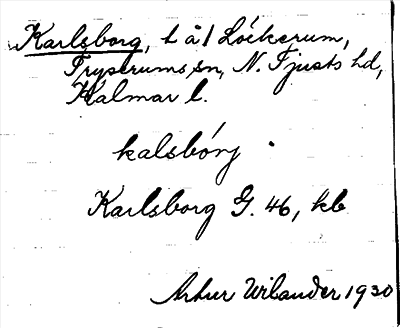 Karlsborg, t å 1 Löckerum,
Tryserums sn, N. Tjusts hd,
Kalmar l.
kalsbórj
Karlsborg G. 46, kb
Arthur Wilander 1930